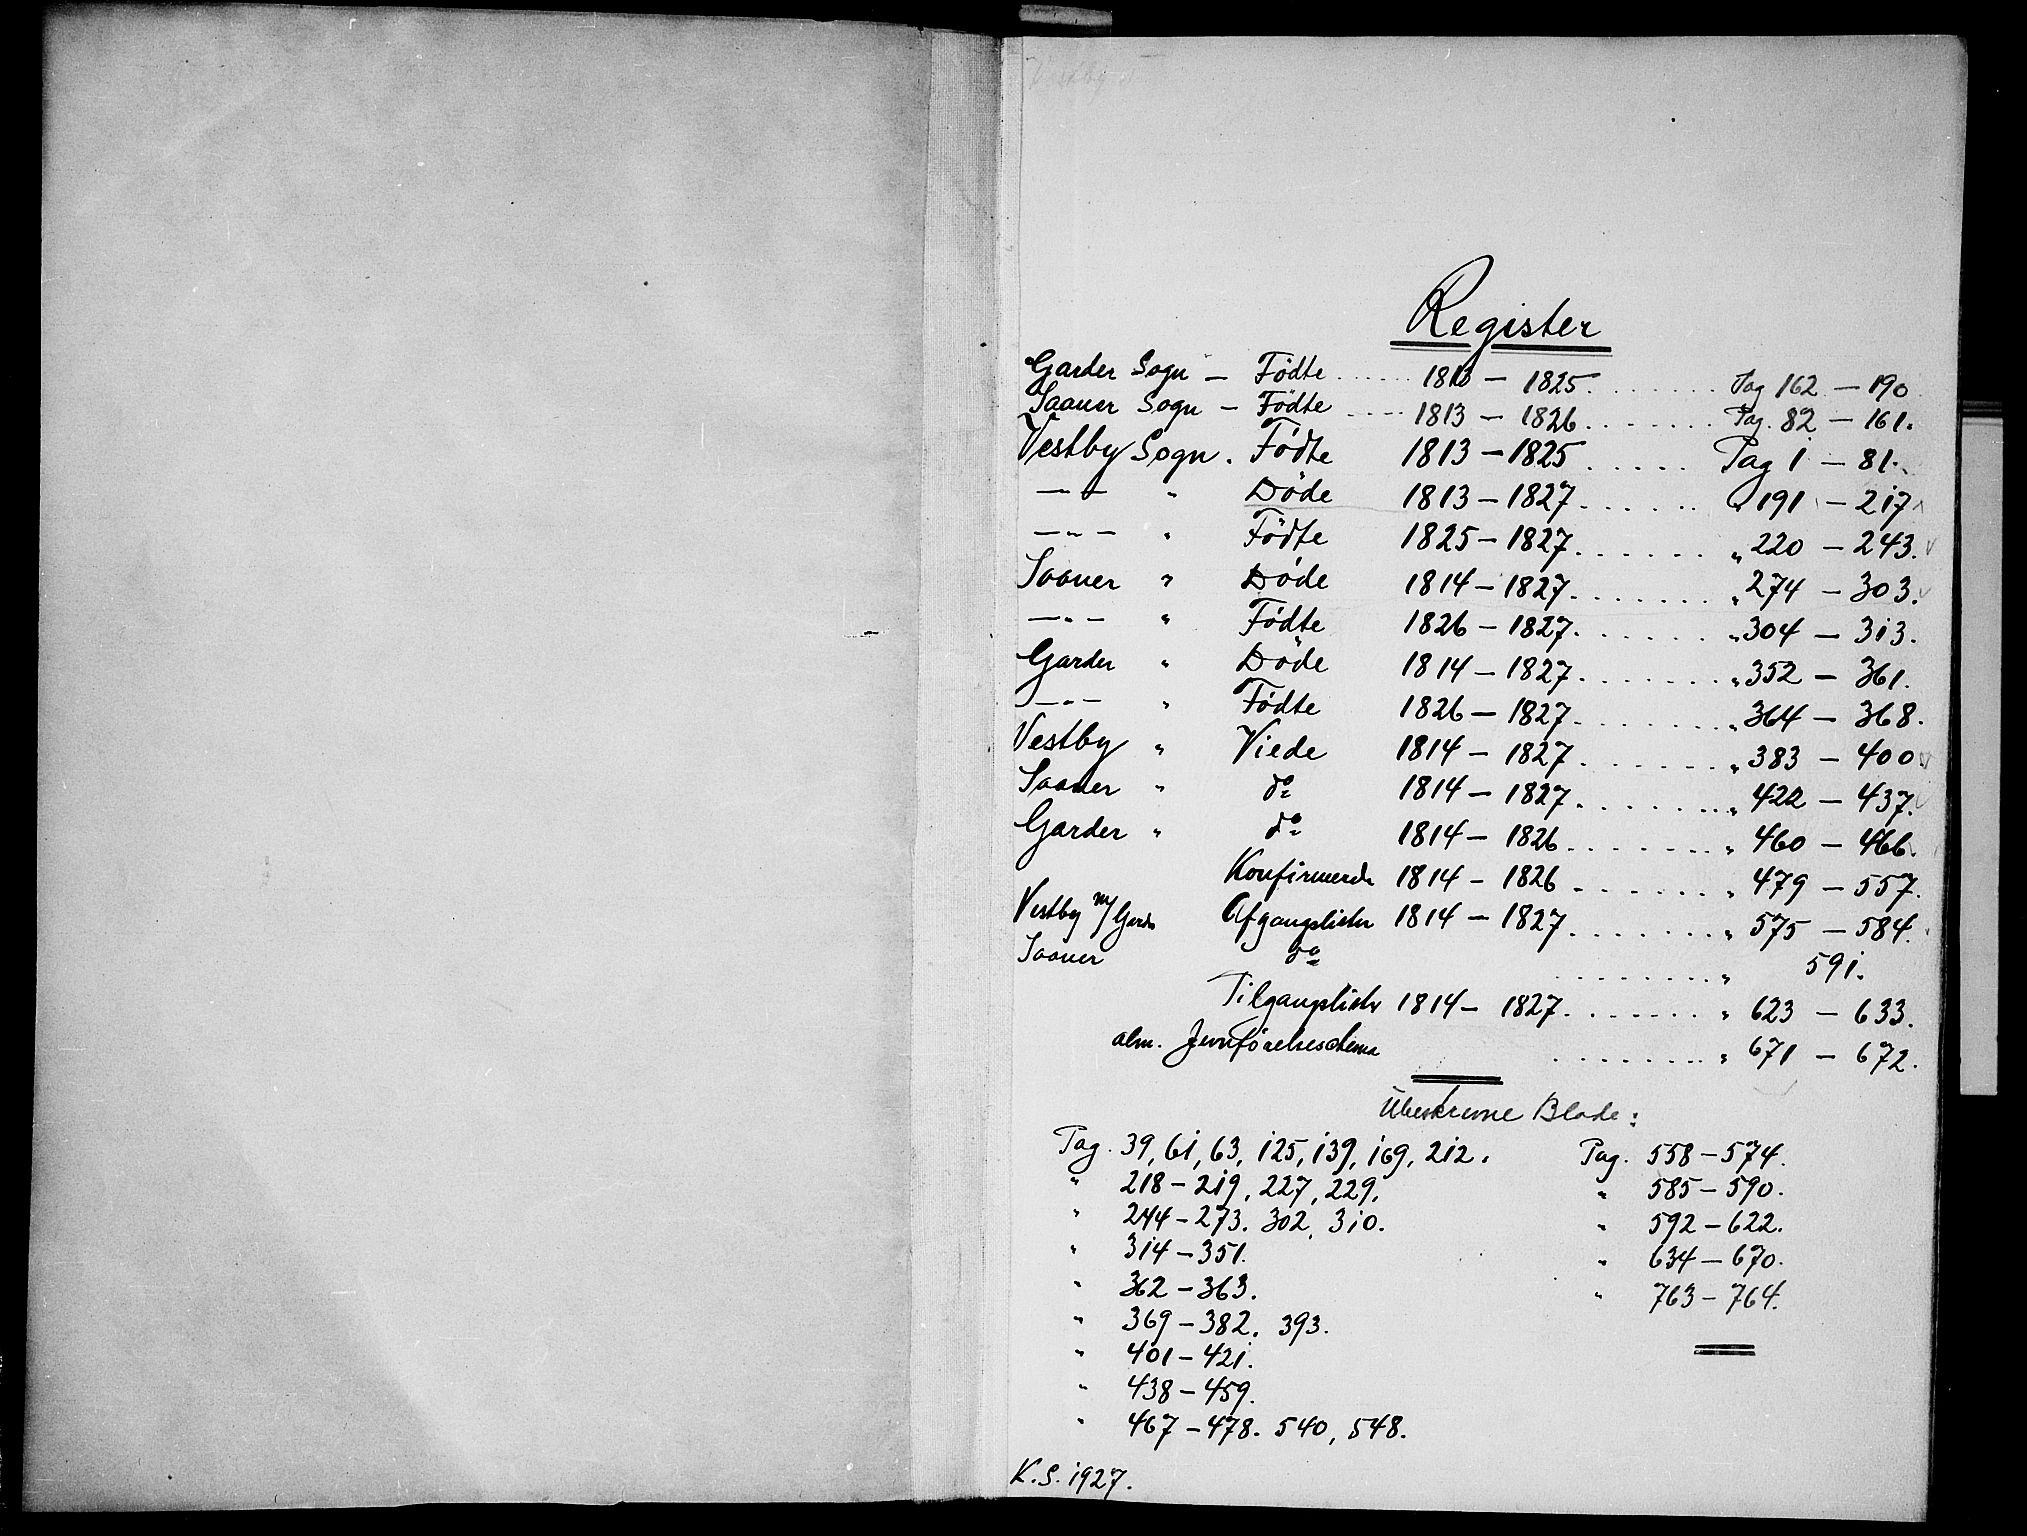 Register
Garder Sogn — Födte ...... 1813 — 1825. ....... Pag 162 — 190
Saaner Sogn — Födte ..... 1813 — 1826. ....... Pag. 82 — 161.
Vestby Sogn. Födte 1813 — 1825 ..... Pag 1 — 81.
—„— " Döde 1813 — 1827. ..... " 191 — 217
—„— " Födte 1825 — 1827. ...... " 220 — 243.
Saaner " Döde 1814 — 1827. ....... " 274 — 303.
—„— " Födte 1826 — 1827. ...... " 304 — 313.
Garder " Döde 1814 — 1827. ....... " 352 — 361.
—„— " Födte 1826 — 1827. ....... " 364 — 368.
Vestby " Viede 1814 — 1827. ....... " 383 — 400
Saaner " do 1814 — 1827. ....... " 422 — 437.
Garder " do 1814 — 1826. ....... " 460 — 466.
Konfirmerde 1814 — 1826 ....... " 479 — 557.
Vestby m/ Garder Afgangslister 1814 — 1827. ....... " 575 — 584.
Saaner do ........ " 591.
Tilgangslister 1814 — 1827. ....... " 623 — 633.
alm. Jevnførelsesschema ........ " 671 — 672.
Ubeskrevne Blade:
Pag. 39, 61, 63, 125, 139, 169, 212. Pag. 558 — 574.
" 218 — 219, 227, 229. " 585 — 590.
" 244 — 273. 302, 310. " 592 — 622.
" 314 — 351. " 634 — 670.
" 362 — 363. " 763 — 764.
" 369 — 382. 393.
" 401 — 421.
" 438 — 459.
" 467 — 478. 540, 548.
K.S. 1927.